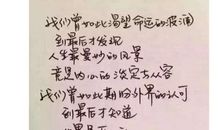 我们曾如此渴望命运的波澜
到最后才发现
人生最曼妙的风景
竟是内心的淡定与从容
我们曾如此期盼外界的认可
到最后才知道